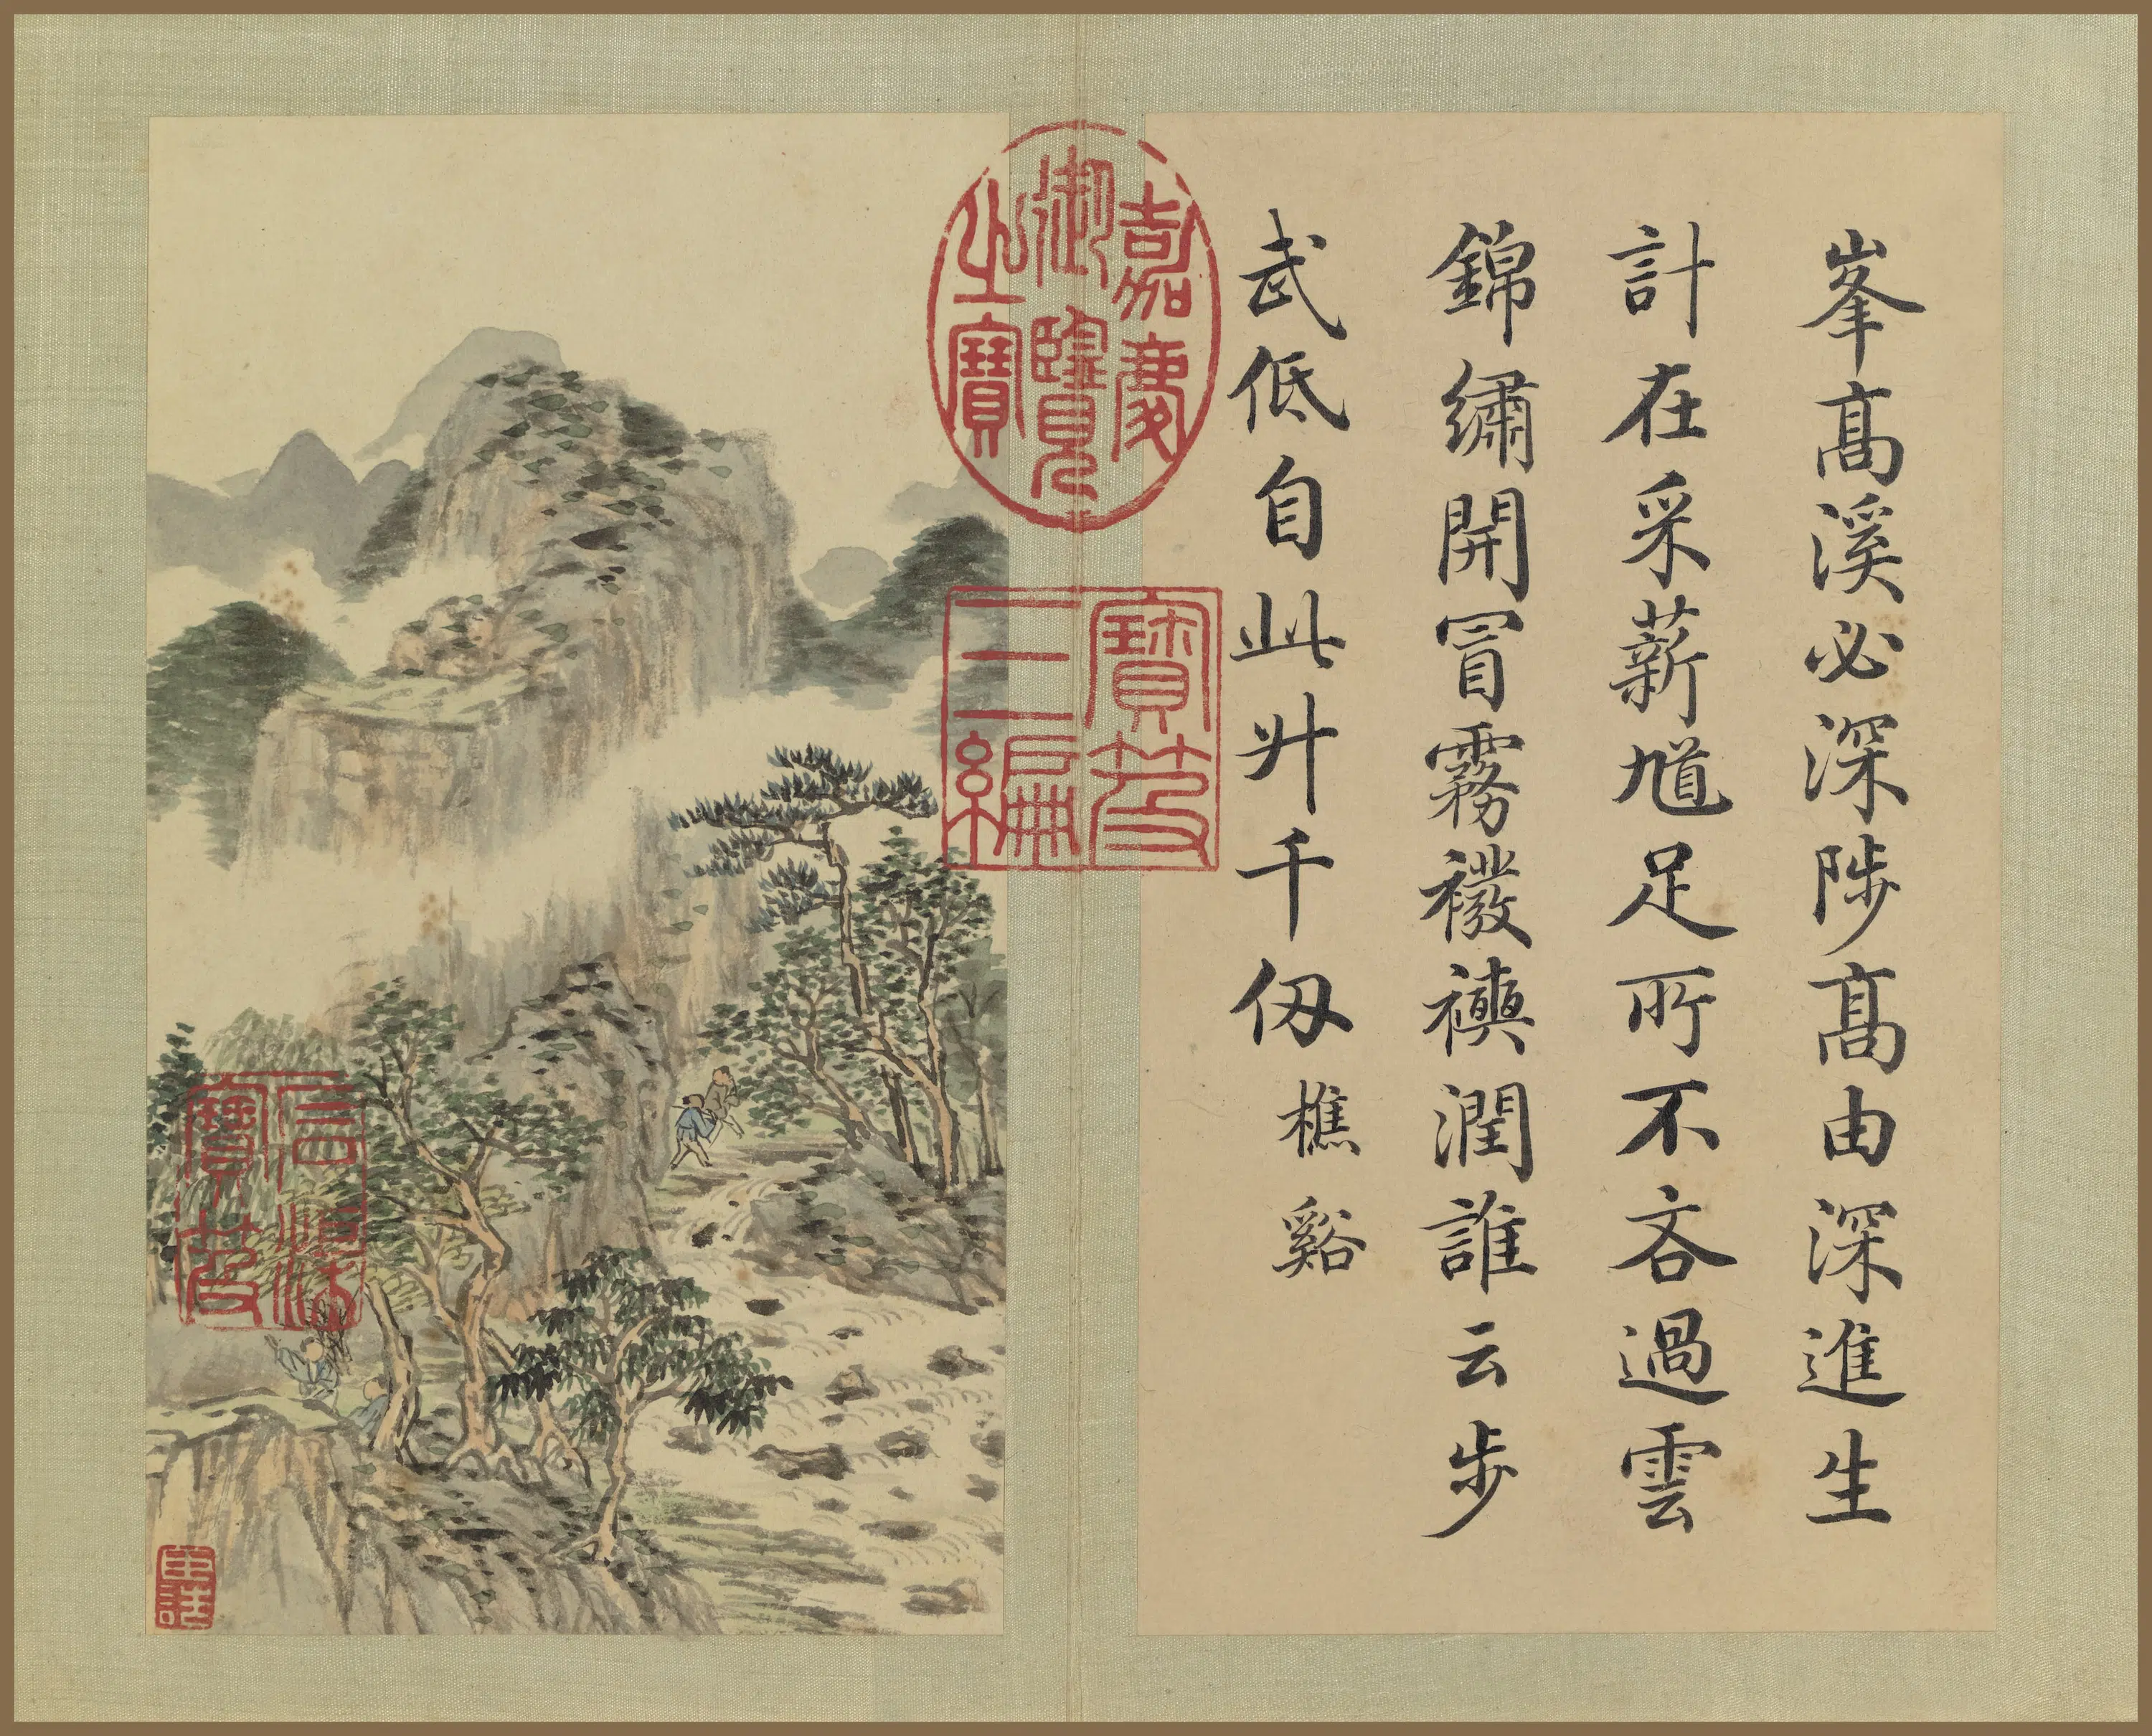 峯高溪必深陟高由深進生
計在采薪馗足所不吝過雲
錦繡開冒霧襏襫潤誰云步
武低自此升千仭樵谿
嘉慶御覽之寶
寶笈三編
宣統寶笈